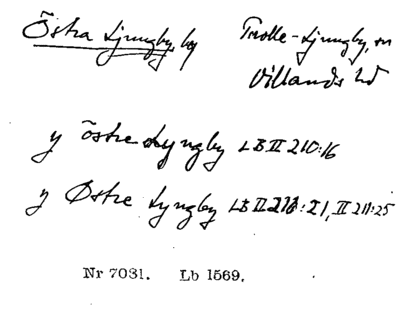 Östra Ljungby, by Trolle-Ljungby, sn
Villands hd
y Östre Lyngby LB II 210:16
y Østre Lyngby LB II 211:21, II 211:25
Nr 7031. Lb 1569.